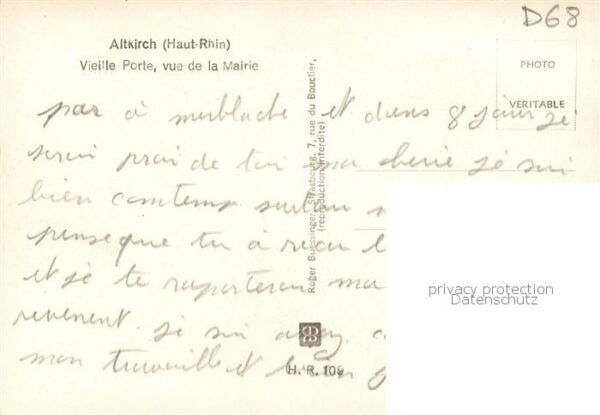 D68
Altkirch (Haut-Rhin)
Vieille Porte, vue de la Mairie
PHOTO
VERITABLE
Roger Buessinger, Strasbourg, 7, rue du Bouclier,
(reproduction interdite)
par à et dans 8 jour je
serai prai de toi ma cherie je sui
bien comtemp surtou
pense que tu à recu
et je te raporterai ma
revenent. je sui assez
mon travaille et bien
H. R. 109
privacy protection
Datenschutz